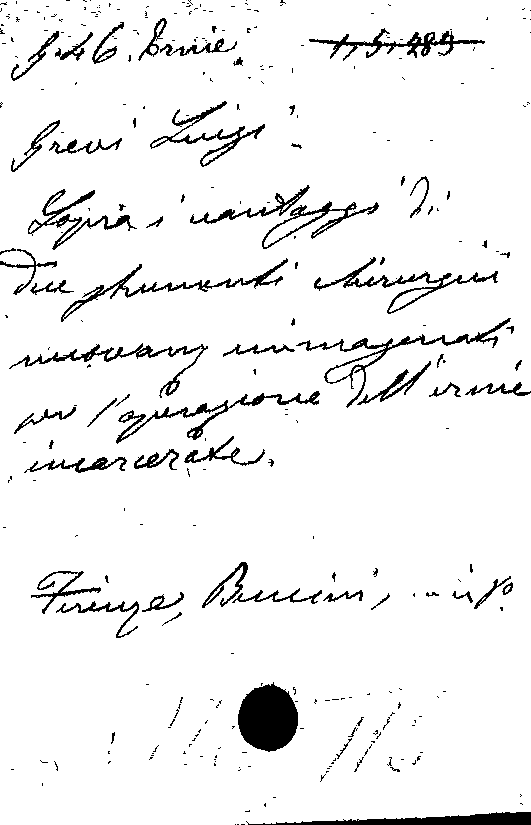 G.4 6. Ernie 1, 5, 289
Grevi Luigi
Sopra i vantaggi di
due strumenti chirurgici
immaginati
per l'operazione dell'ernie
incarcerate.
Firenze, in 8°